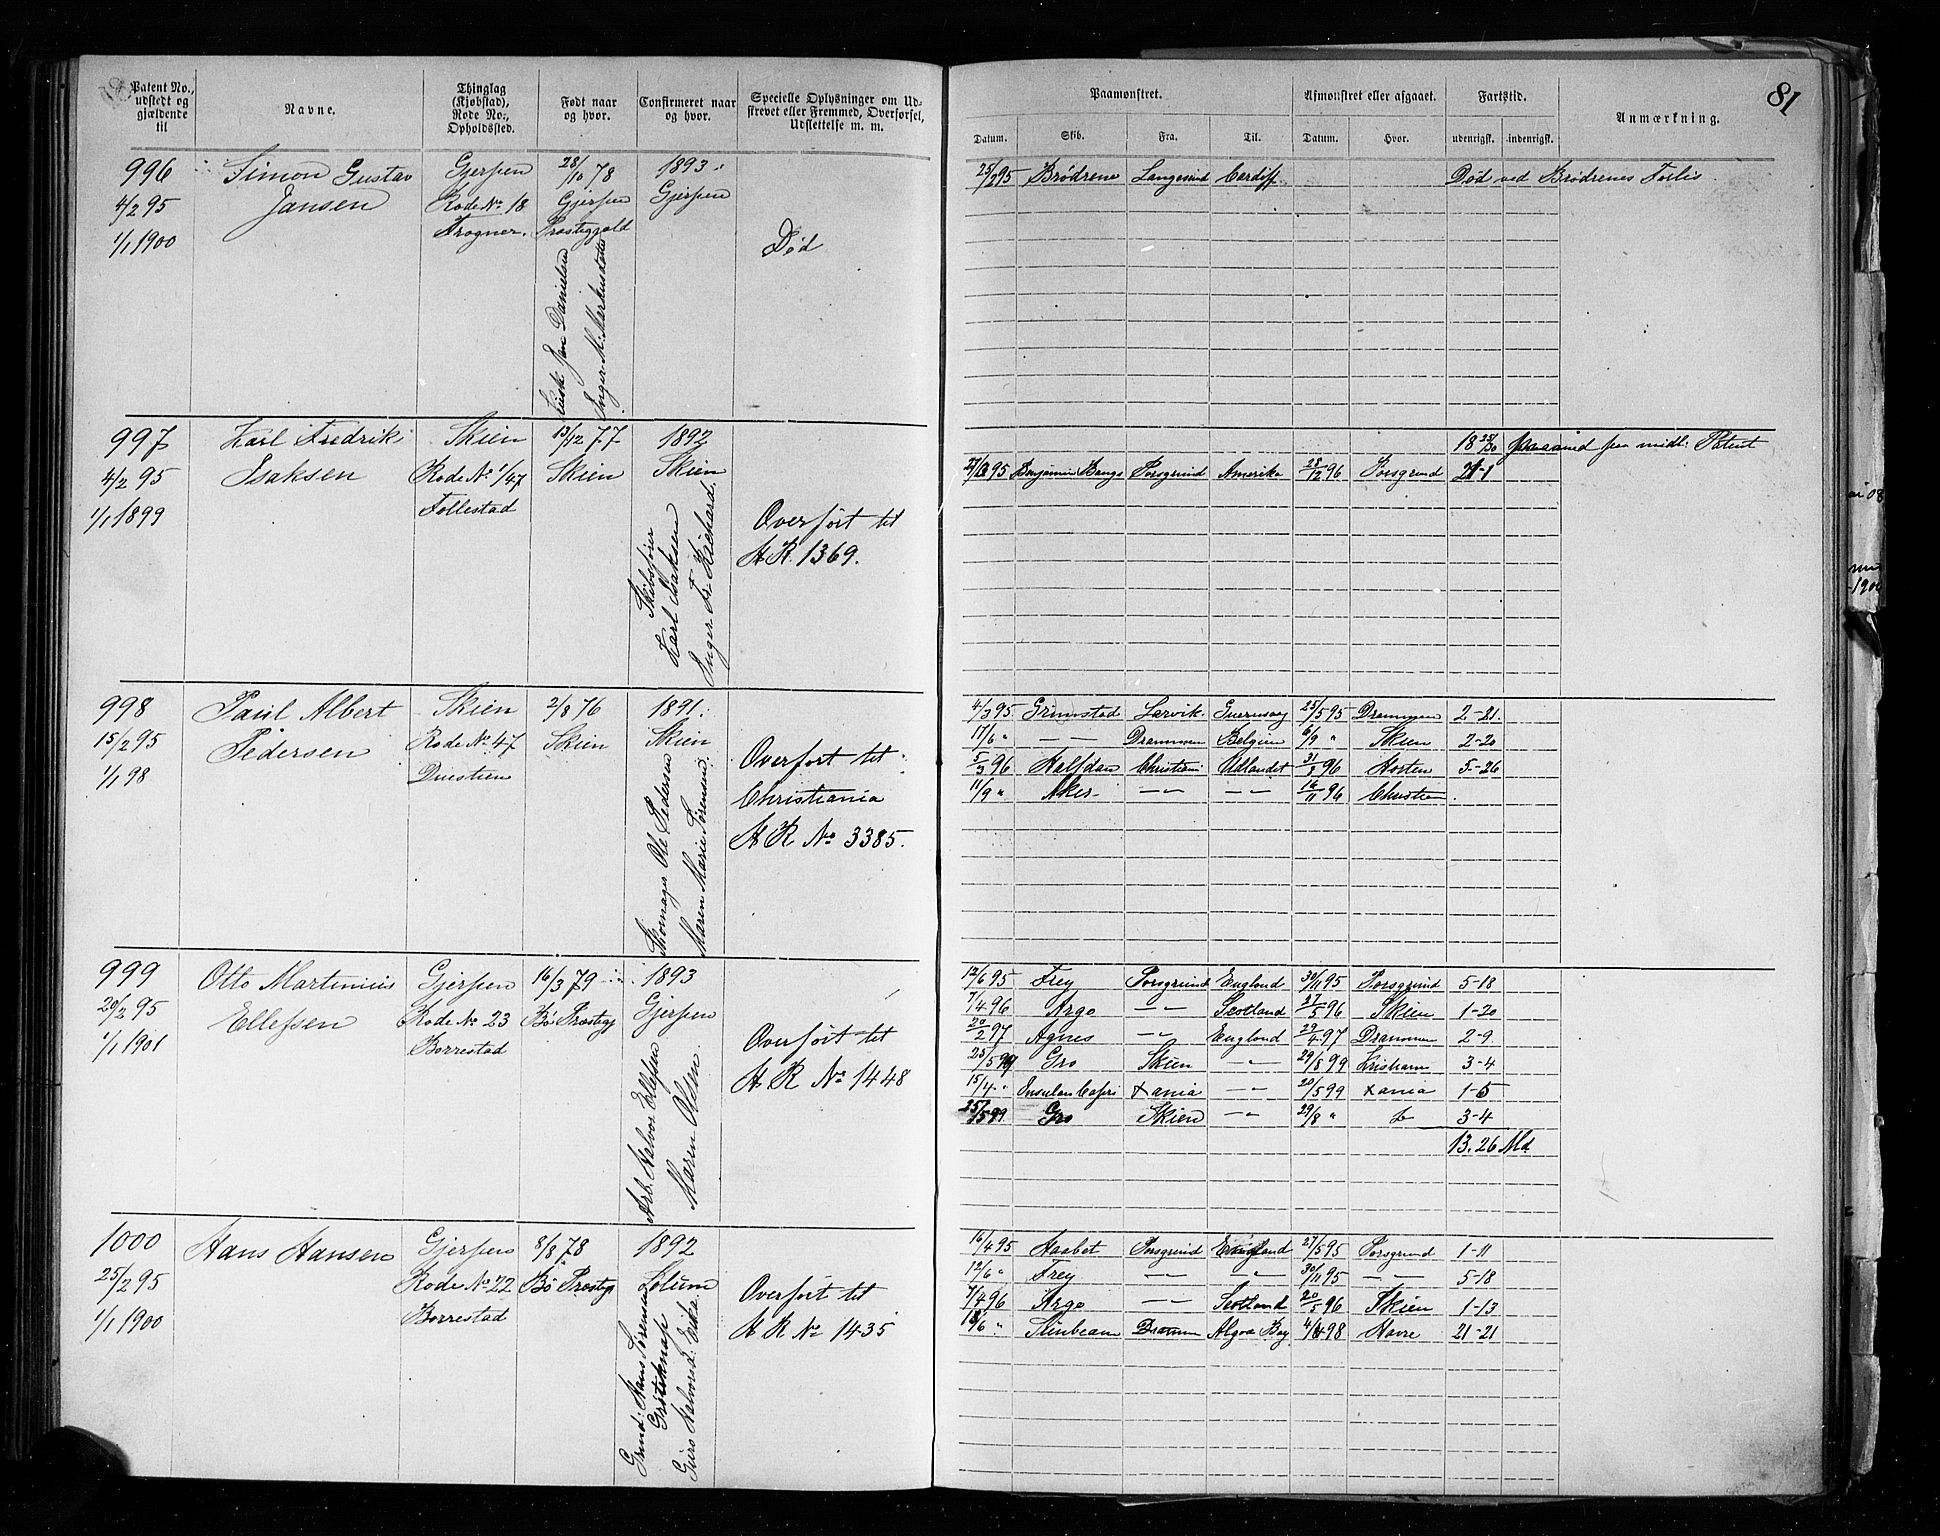 81
Patent No., udstedt og gjældende til
Navne.
Thinglag (Kjøbstad), Rode No., Opholdssted.
Født naar og hvor.
Confirmeret naar og hvor.
Specielle Oplysninger om Udskrevet eller Fremmed, Overførsel, Udslettelse m. m.
Paamønstret.
Afmønstret eller afgaaet.
Fartstid.
Anmærkning.
Datum. Skib. Fra. Til. Datum. Hvor. udenrigsk. indenrigsk.
996 Simon Gustav Gjerpen 28/10 78 1893
4/2 95 Jansen Rode No 18 Gjerpen Gjerpen
1/1 1900 Frogner. Præstegjæld
Død
Jan Danielsen
Inger M. Markusdatter
25/2 95 Brødrene Langesund Cardiff Død ved Brødrenes Forlis.
997 Karl Fredrik Skien 13/12 77 1892
4/2 95 Isaksen Rode No 1/47 Skien Skien
1/1 1899 Follestad
Overført til
H R. 1369.
Skibsfører
Karl Isaksen
Inger Fr. Richard.
paa midl: Patent
95 Benjamin Bangs Porsgrund Amerika 28/12 96 Porsgrund 21-1
998 Paul Albert Skien 2/8 76 1891.
15/2 95 Pedersen Rode No 47 Skien Skien
1/1 98
Overført til
Christiania
H R No 3385.
Ole Pedersen
Maren Marie Sørensen.
4/3 95. Grimstad Larvik. Guernsay 25/5 95 Drammen 2-21.
17/6 " — — Drammen Belgien 6/9 " Skien 2-20
5/3 96 Halfdan Christiani Udlandet 31/8 96 Horten 5-26
11/9 " Aker — — — — 16/11 96 Christian.
999 Otto Martinius Gjerpen 16/3 79 1893
20/2 95 Ellefsen Rode No 23 Bø Præstegj Gjerpen
1/1 1901 Borrestad
Overført til
H R No 1448
Arb. Halvor Ellefsen
Maren Olsen
12/6 95 Frey Porsgrund England 30/11 95 Porsgrund 5-18
7/4 96 Argo — Scotland 27/5 96 Skien 1-20
20/2 97 Agnes — England 29/4 97 Drammen 2-9
25/5 99 Gro Skien — 29/8 99 3-4
15/4 " Insulan Capri Xania — 20/5 99 Xania 1-5
25/5 99 Gro Skien — 29/8 " 3-4
13.26 Md
1000 Hans Hansen Gjerpen 8/8 78 1892
25/2 95 Rode No 22 Bø Præstegj Solum
1/1 1900 Borrestad
Overført til
H R No 1435
Hans Sørensen
Grotsknap
16/4 95 Haabet Porsgrund England 27/5 95 Porsgrund 1-11
12/6 " Frey — — — — 30/11 95 — — 5-18
7/4 96 Argo — — Scotland 20/5 96 Skien 1-13
18/6 " Sunbeam Dramm Algoa Bay. 4/4 98 Havre 21-21